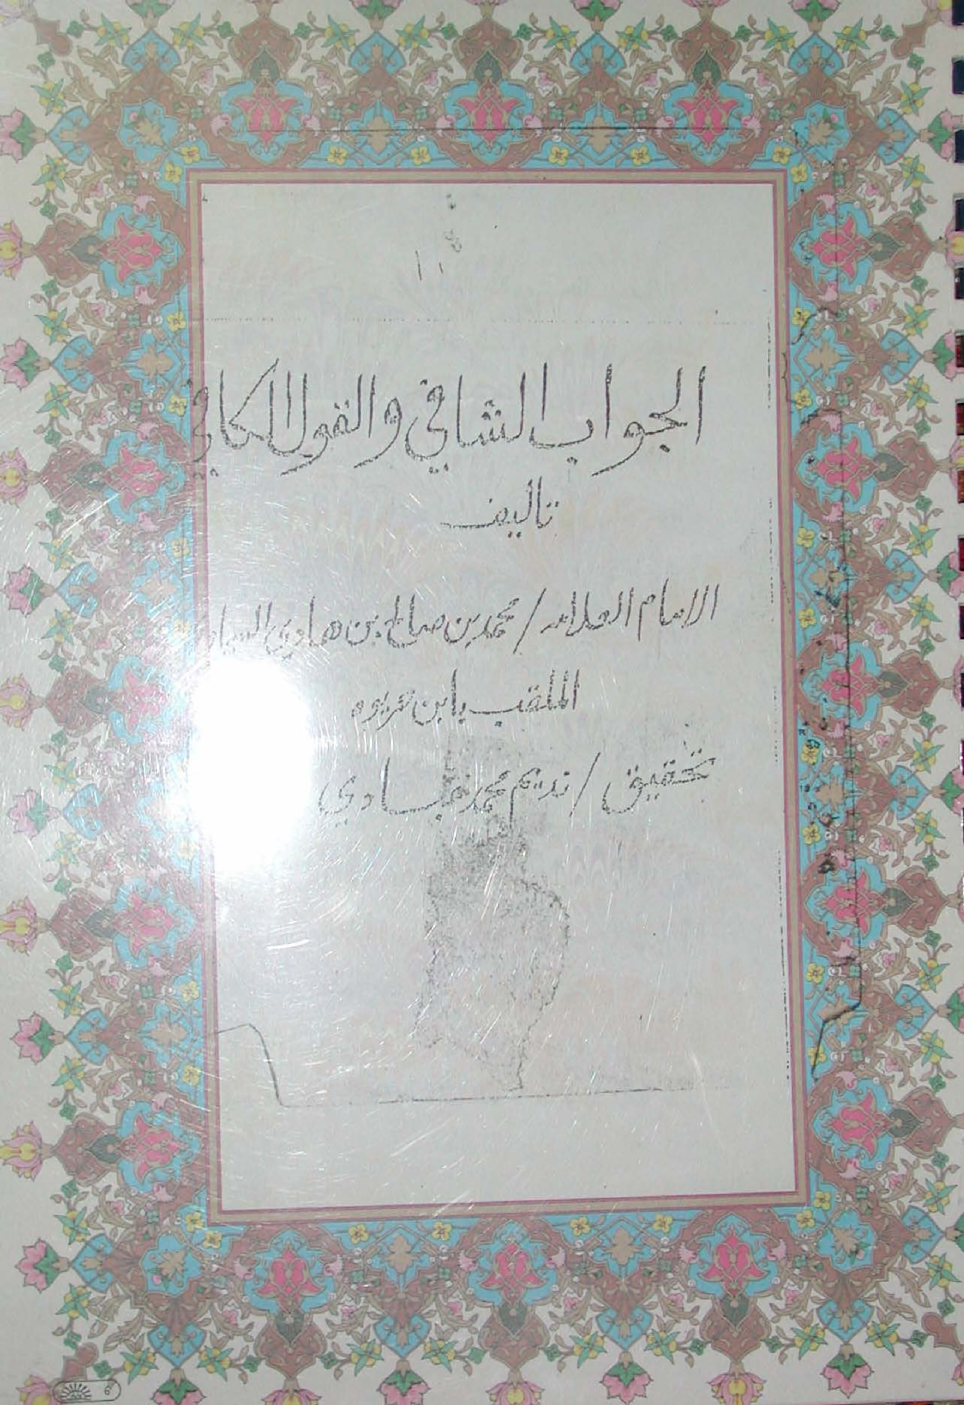 الجواب الشافي والقول الكافي
تاليف
الامام العلامه / محمد بن صالح بن هادي
الملقب بابن حريوه
تحقيق / نديم محمد عبادي